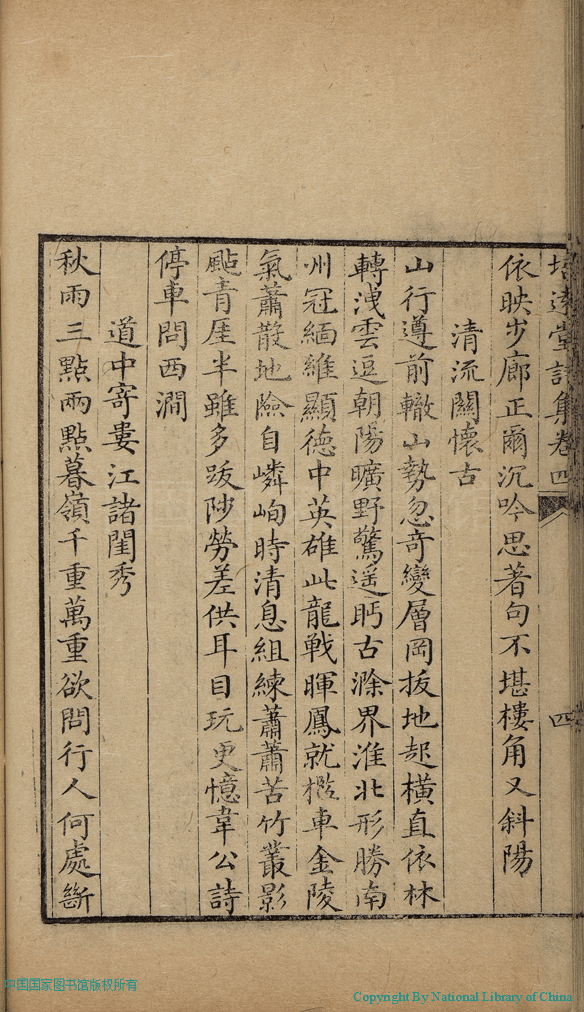 培遠堂詩集卷四
四
依映步廊正爾沉吟思著句不堪樓角又斜陽
清流關懷古
山行遵前轍山勢忽奇變層岡拔地起橫直依林
轉洩雲逗朝陽曠野驚遥眄古滁界淮北形勝南
州冠緬維顯德中英雄此龍戰暉鳳就檻車金陵
氣蕭散地險自嶙峋時清息組練蕭蕭苦竹叢影
颭青厓半雖多跋陟勞差供耳目玩更憶韋公詩
停車問西澗
道中寄婁江諸閨秀
秋雨三點兩點暮嶺千重萬重欲問行人何處斷
中国国家图书馆版权所有
Copyright By National Library of China